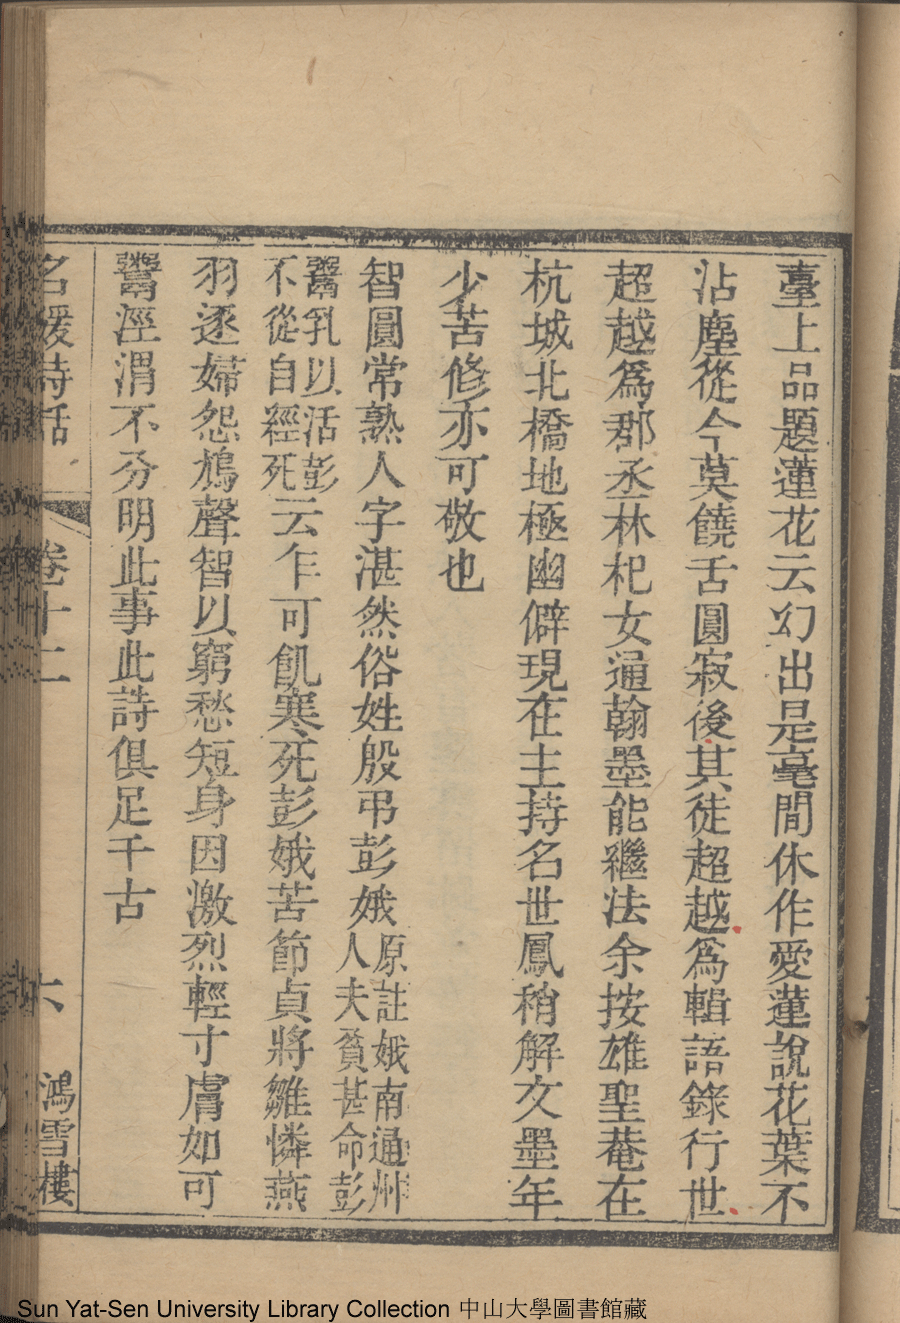 臺上品題蓮花云幻出是毫間休作愛蓮說花葉不
沾塵從今莫饒舌圓寂後其徒超越爲輯語錄行世
超越爲郡丞林杞女通翰墨能繼法余按雄聖菴在
杭城北橋地極幽僻現在主持名世鳳稍解文墨年
少苦修亦可敬也
智圓常熟人字湛然俗姓殷弔彭娥原註娥南通州人夫貧甚命彭
鬻乳以活彭不從自經死云乍可飢寒死彭娥苦節貞將雛憐燕
羽逐婦怨鳩聲智以窮愁短身因激烈輕寸膚如可
鬻涇渭不分明此事此詩俱足千古
名媛詩話 卷十二 六 鴻雪樓
Sun Yat-Sen University Library Collection 中山大學圖書館藏